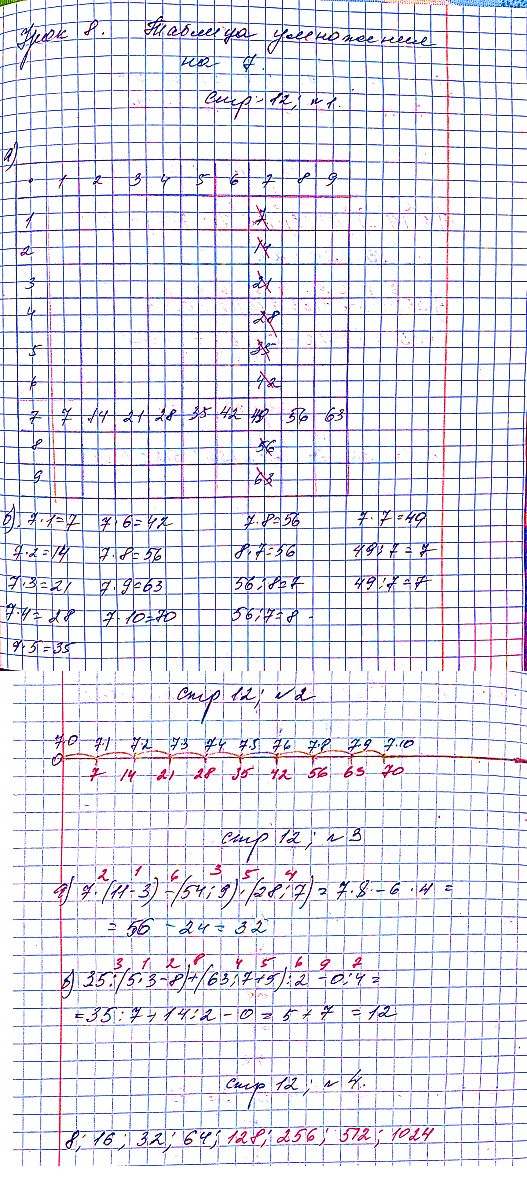 Урок 8. Таблица умножения
на 7.
стр. 12; №1.
а)
· 1 2 3 4 5 6 7 8 9
1 7
2 14
3 21
4 28
5 35
6 42
7 7 14 21 28 35 42 49 56 63
8 56
9 63
б) 7·1=7 7·6=42 7·8=56 7·7=49
7·2=14 7·8=56 8·7=56 49:7=7
7·3=21 7·9=63 56:8=7 49:7=7
7·4=28 7·10=70 56:7=8
7·5=35
стр 12; №2
7·0 7·1 7·2 7·3 7·4 7·5 7·6 7·8 7·9 7·10
0 7 14 21 28 35 42 56 63 70
стр 12; №3
2 1 6 3 5 4
а) 7·(11-3)-(54:9)·(28:7)=7·8-6·4=
=56-24=32
3 1 2 8 4 5 6 9 7
б) 35:(5·3-8)+(63:7+5):2-0:4=
=35:7+14:2-0=5+7=12
стр 12; №4.
8; 16; 32; 64; 128; 256; 512; 1024